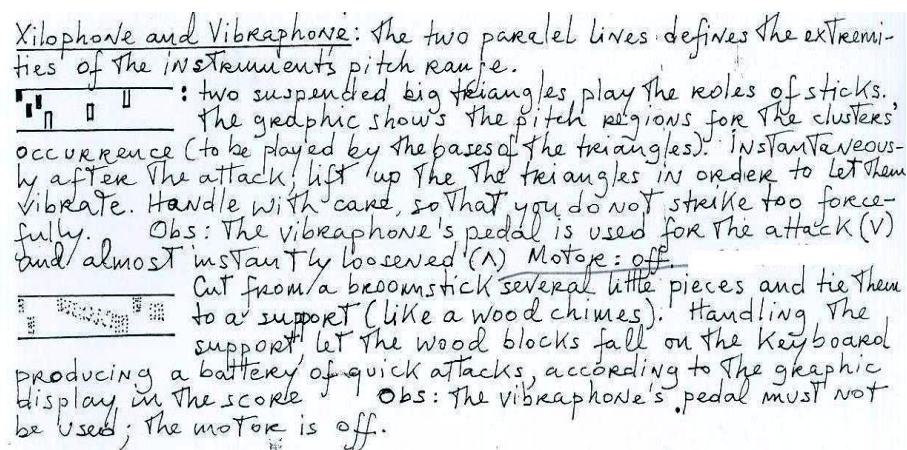 Xilophone and Vibraphone: the two paralel lines defines the extremi-
ties of the instrument's pitch range.
: two suspended big triangles play the roles of sticks.
The graphic show's the pitch regions for the clusters'
occurrence (to be played by the bases of the triangles). Instantaneous-
ly after the attack, lift up the the triangles in order to let them
vibrate. Handle with care, so that you do not strike too force-
fully. Obs: the vibraphone's pedal is used for the attack (V)
and almost instantly loosened (Λ) Motor: off
Cut from a broomstick several little pieces and tie them
to a support (like a wood chimes). Handling the
support, let the wood blocks fall on the keyboard
producing a battery of quick attacks, according to the graphic
display in the score Obs: the vibraphone's pedal must not
be used; the motor is off.